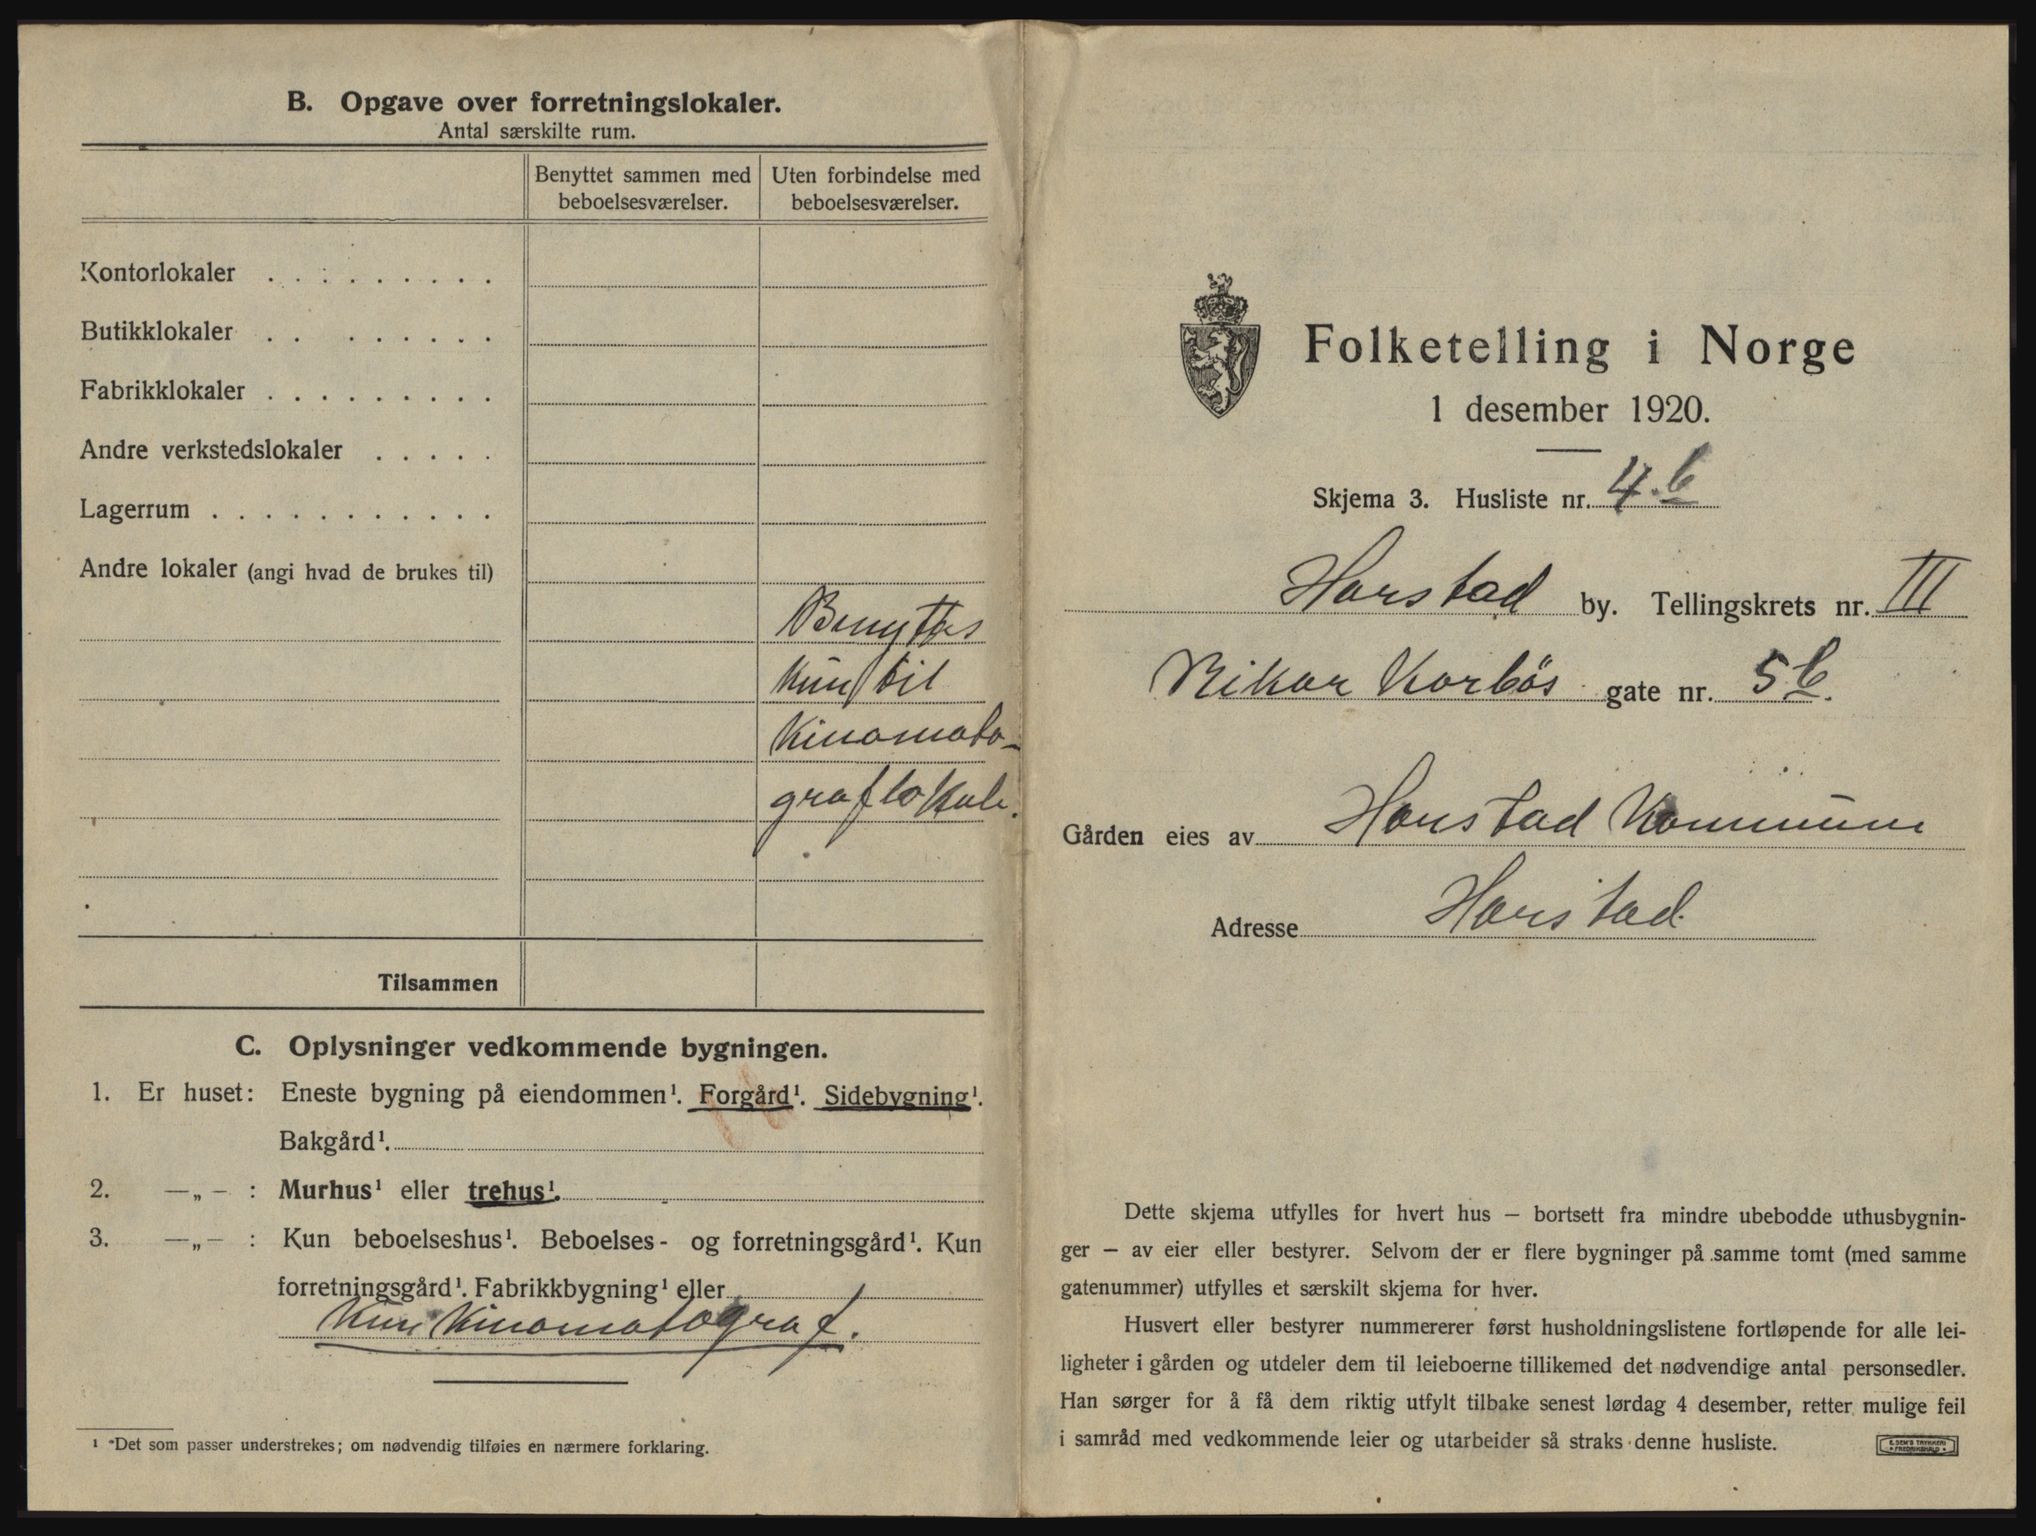 B. Opgave over forretningslokaler.
Antal særskilte rum.
Benyttet sammen med
beboelsesværelser.
Uten forbindelse med
beboelsesværelser.
Kontorlokaler . . . . . . . . .
Butikklokaler . . . . . . . .
Fabrikklokaler . . . . . . . . .
Andre verkstedslokaler . . . . .
Lagerrum . . . . . . . . . . .
Andre lokaler (angi hvad de brukes til)
Benyttes
Kun til
Kinomato-
graflokale.
Tilsammen
C. Oplysninger vedkommende bygningen.
1. Er huset: Eneste bygning på eiendommen¹. Forgård¹. Sidebygning¹.
Bakgård¹.
2. —„— : Murhus¹ eller trehus¹.
3. —„— : Kun beboelseshus¹. Beboelses- og forretningsgård¹. Kun
forretningsgård¹. Fabrikkbygning¹ eller
Kun Kinomatograf.
¹ Det som passer understrekes; om nødvendig tilføies en nærmere forklaring.
Folketelling i Norge
1 desember 1920.
Skjema 3. Husliste nr. 4.b
Harstad by. Tellingskrets nr. III
Rikar Karbøs gate nr. 5b.
Gården eies av Harstad Kommune
Adresse Harstad
Dette skjema utfylles for hvert hus — bortsett fra mindre ubebodde uthusbygnin-
ger — av eier eller bestyrer. Selvom der er flere bygninger på samme tomt (med samme
gatenummer) utfylles et særskilt skjema for hver.
Husvert eller bestyrer nummererer først husholdningslistene fortløpende for alle lei-
ligheter i gården og utdeler dem til leieboerne tillikemed det nødvendige antal personsedler.
Han sørger for å få dem riktig utfylt tilbake senest lørdag 4 desember, retter mulige feil
i samråd med vedkommende leier og utarbeider så straks denne husliste.
E. SEM'S TRYKKERI
FREDRIKSHALD